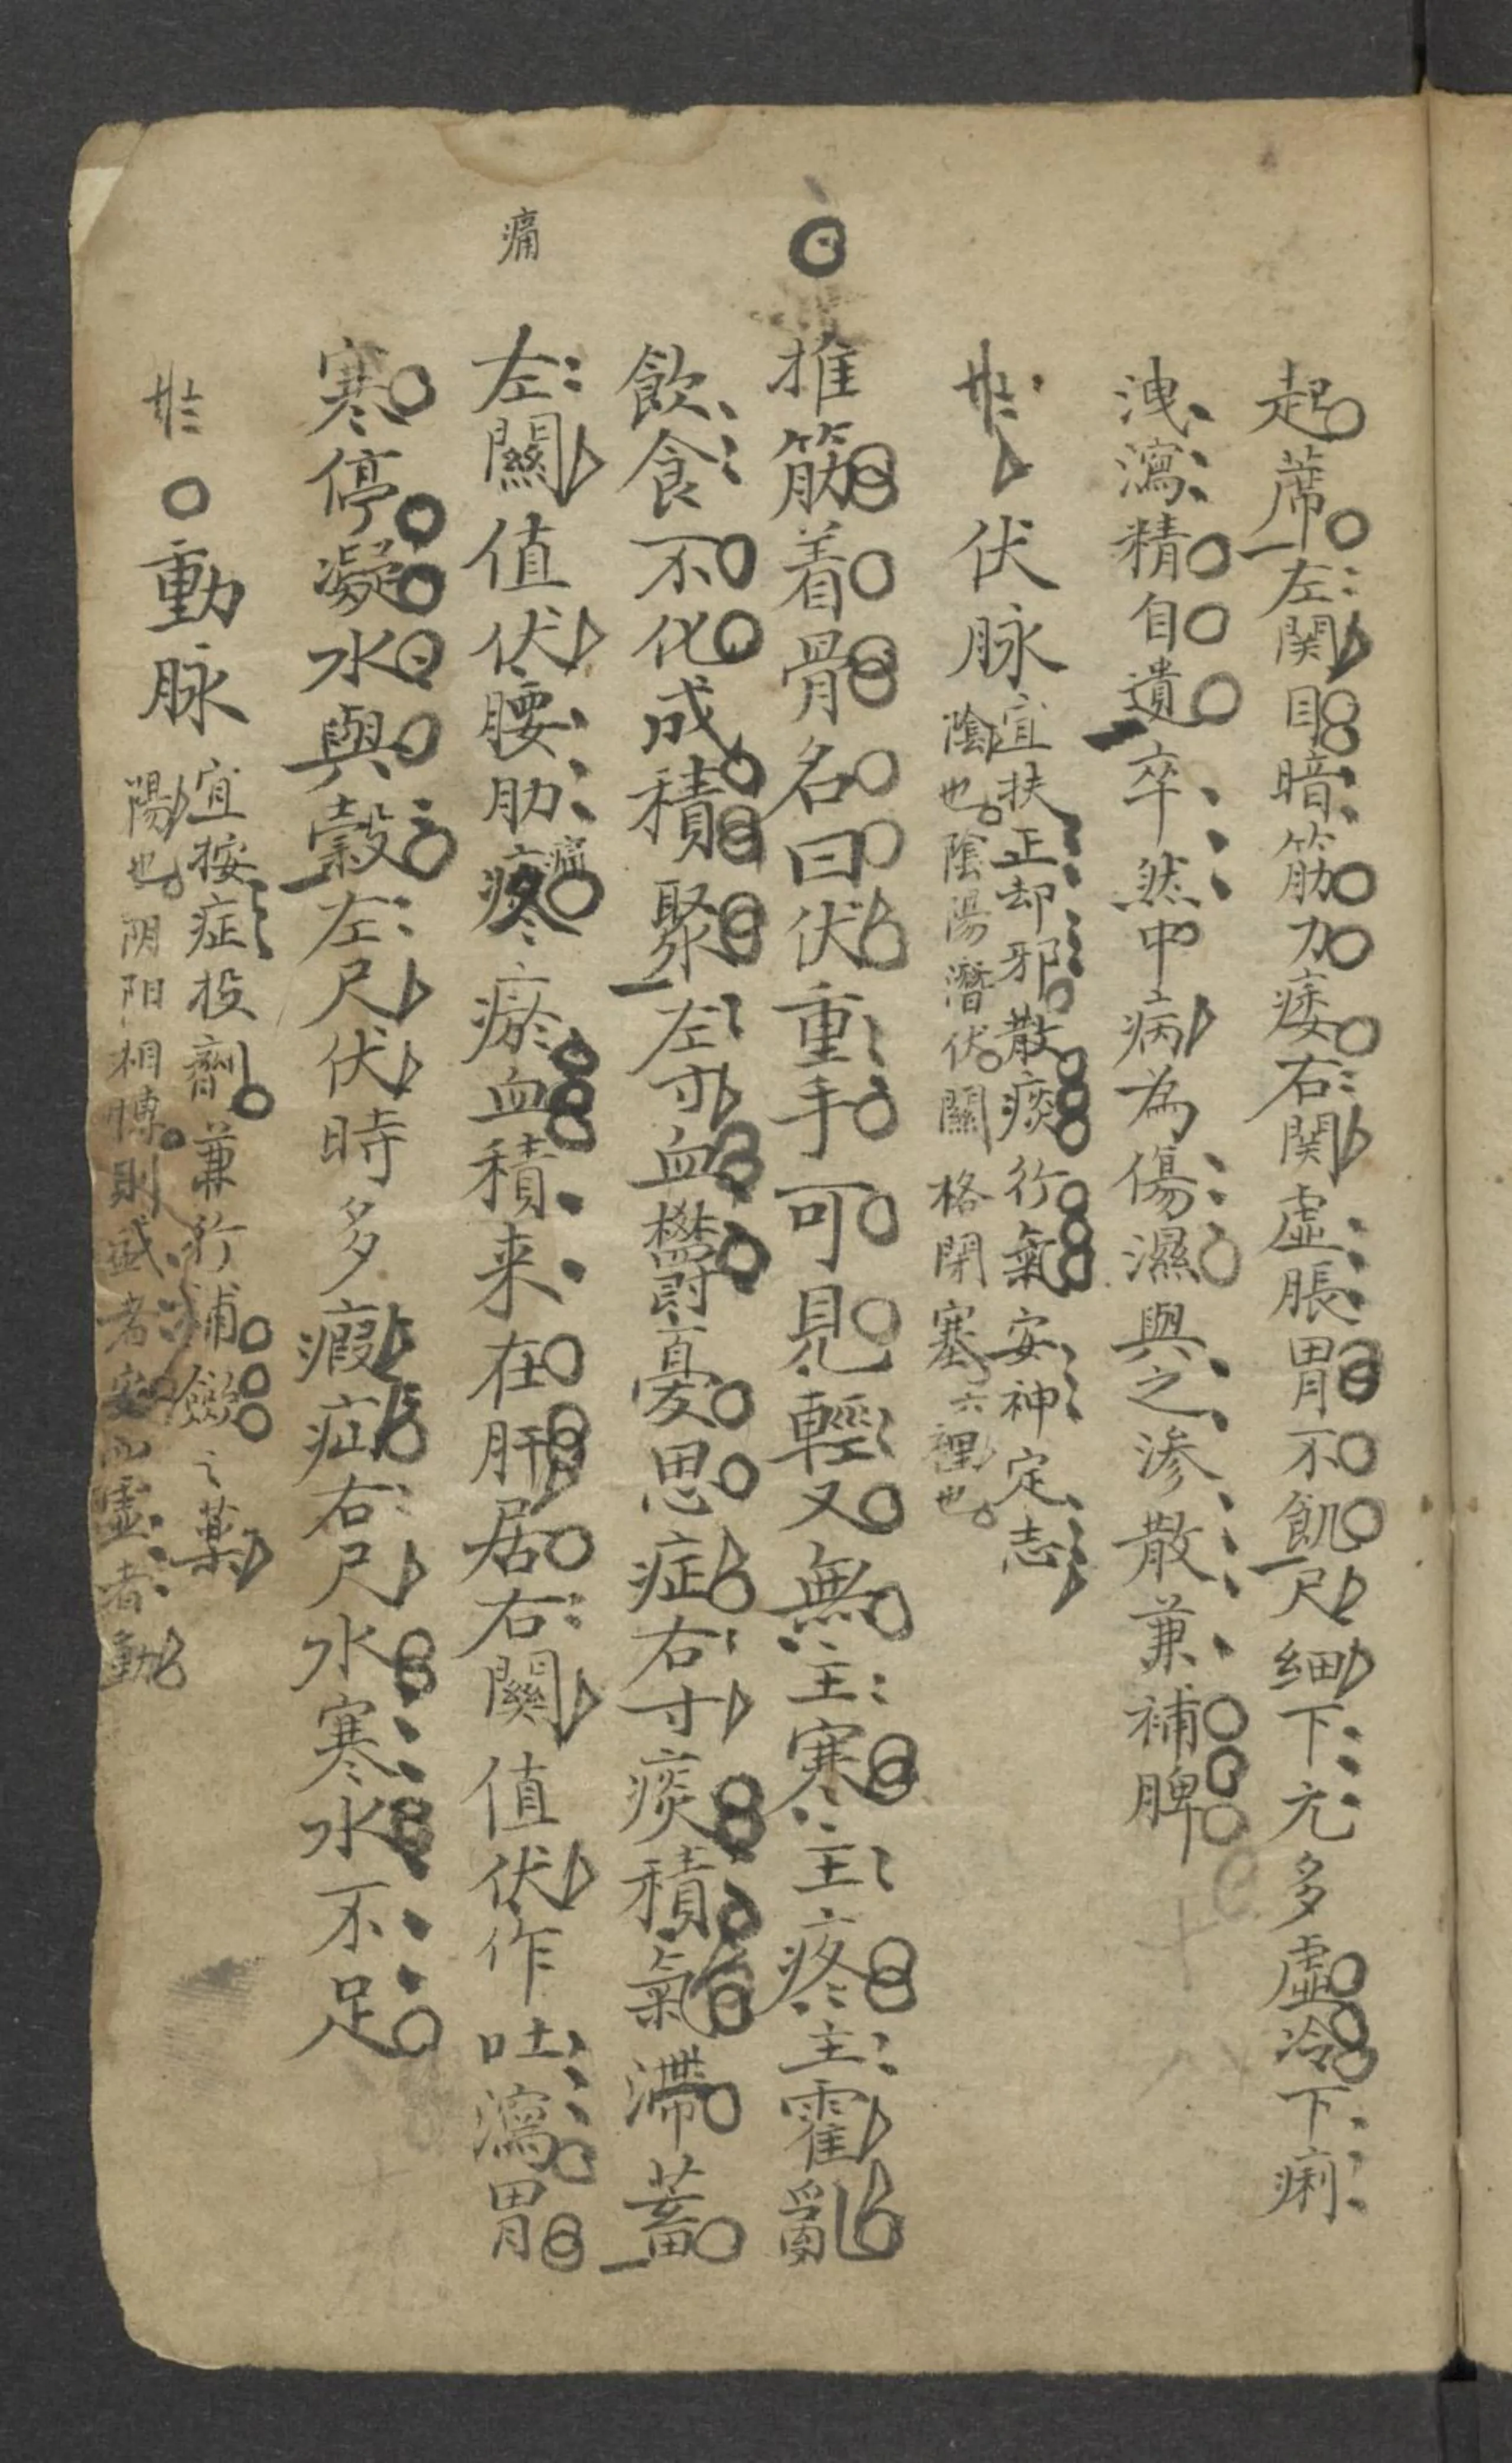 起蓆左関目暗筋力痿右関虚脹胃不飢尺細下元多虛冷下痢
洩瀉精自遺卒然中病為傷濕與之滲散兼補脾
伏脉
宜扶正却邪散痰行氣安神定志
陰也陰陽潛伏關格閉塞六裡也
推筋着骨名曰伏重手可見輕又無主寒主疼主霍亂
飲食不化成積聚左寸血鬱憂思症右寸痰積氣滯蓄
痛
左關值伏腰肋疼瘀血積来在肝居右關值伏作吐瀉胃
痛
寒停凝水與穀左尺伏時多瘕疝右尺水寒水不足
動脉
宜按症投劑兼行補斂之藥
陽也阴阳相博則盛者安而虛者動